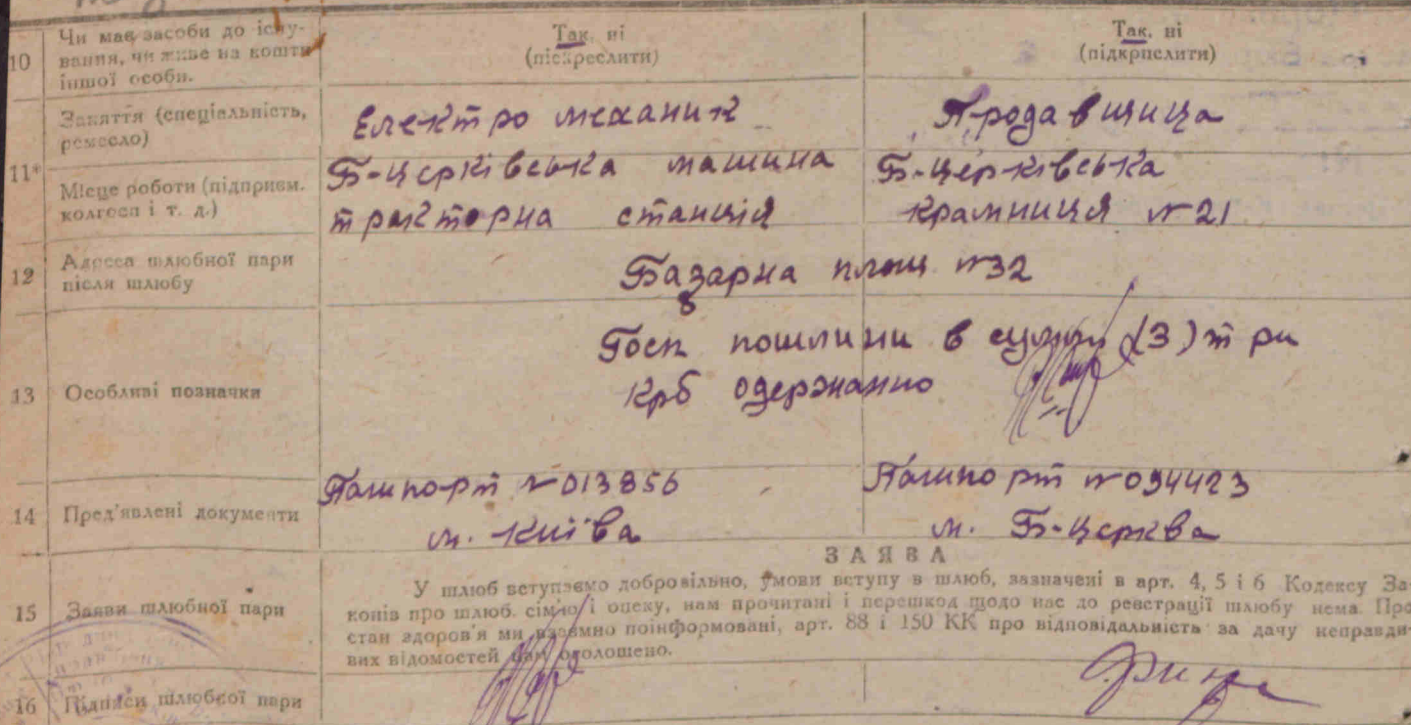 10 Чи має засоби до існу-
вання, чи живе на кошти
іншої особи.
Так, ні
(підкреслити)
Так, ні
(підкрпслити)
11
Заняття (спеціальність,
ремесло)
Електро механик
Продавщица
Місце роботи (підприєм.
колгосп і т. д.)
Б-церківська машина
тракторна станція
Б-церківська
крамниця №21
12 Адреса шлюбної пари
після шлюбу
Базарна площ. №32
13 Особливі позначки
Госп пошлини в сумми (3) три
крб одержанно
14 Пред'явлені документи
Пашпорт №013856
м. Київа
Пашпорт №094423
м. Б-Церква
15 Заяви шлюбної пари
ЗАЯВА
У шлюб вступаємо добровільно, умови вступу в шлюб, зазначені в арт. 4, 5 і 6 Кодексу За-
конів про шлюб. сім'ю і опеку, нам прочитані і перешкод щодо нас до реєстрації шлюбу нема. Про
стан здоров'я ми взаємно поінформовані, арт. 88 і 150 КК про відповідальність за дачу неправди-
вих відомостей нам оголошено.
16 Підписи шлюбної пари